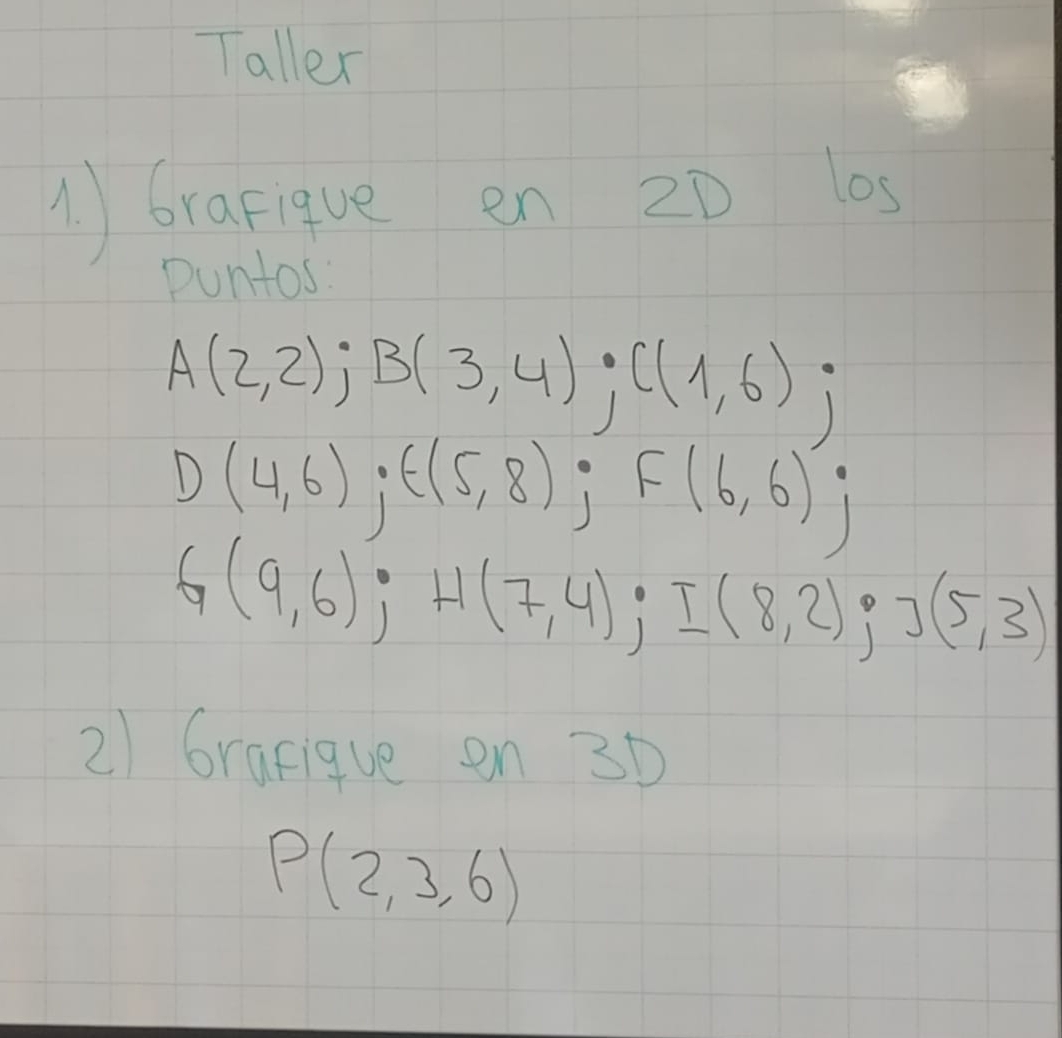 Taller
1.) Grafique en 2D los
puntos:
A(2,2); B(3,4); C(1,6);
D(4,6); E(5,8); F(6,6);
G(9,6); H(7,4); I(8,2); J(5,3)
2) Grafique en 3D
P(2,3,6)